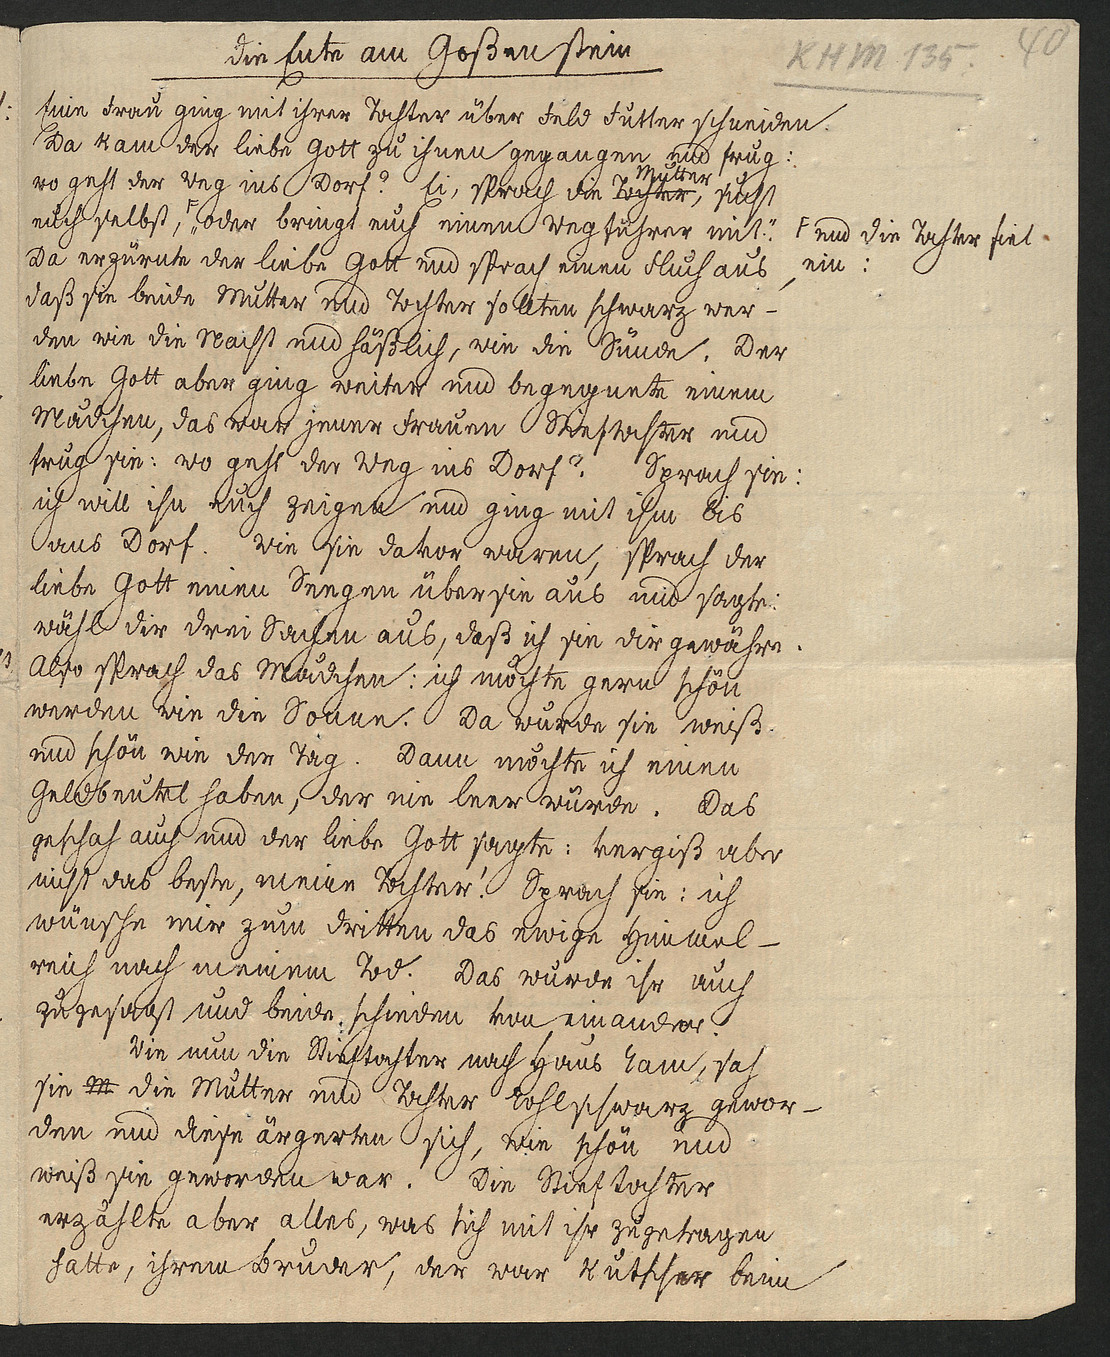 Die Ente am Goßenstein
KHM 135. 40
Eine Frau ging mit ihrer Tochter über Feld Futter schneiden.
Da kam der liebe Gott zu ihnen gegangen und frug:
wo geht der Weg ins Dorf? Ei, sprach die Tochter, Mutter sucht
euch selbst, F „oder bringt euch einen Wegführer mit."
F und die Tochter fiel
ein:
Da erzürnte der liebe Gott und sprach einen Fluch aus,
daß sie beide Mutter und Tochter sollten schwarz wer-
den wie die Nacht und häßlich, wie die Sünde. Der
liebe Gott aber ging weiter und begegnete einem
Mädchen, das war jener Frauen Stieftochter und
frug sie: wo geht der Weg ins Dorf? Sprach sie:
ich will ihn euch zeigen und ging mit ihm bis
ans Dorf. Wie sie davor waren, sprach der
liebe Gott einen Seegen über sie aus und sagte:
wähl dir drei Sachen aus, daß ich sie dir gewähre.
Also sprach das Mädchen: ich möchte gern schön
werden wie die Sonne. Da wurde sie weiß
und schön wie der Tag. Dann möchte ich einen
Geldbeutel haben, der nie leer würde. Das
geschah auch und der liebe Gott sagte: vergiß aber
nicht das beste, meine Tochter! Sprach sie: ich
wünsche mir zum dritten das ewige Himmel-
reich nach meinem Tod. Das wurde ihr auch
zugesagt und beide schieden von einander.
Wie nun die Stieftochter nach Haus kam, sah
sie M die Mutter und Tochter kohlschwarz gewor-
den und diese ärgerten sich, wie schön und
weiß sie geworden war. Die Stieftochter
erzählte aber alles, was sich mit ihr zugetragen
hatte, ihrem Bruder, der war Kutscher beim